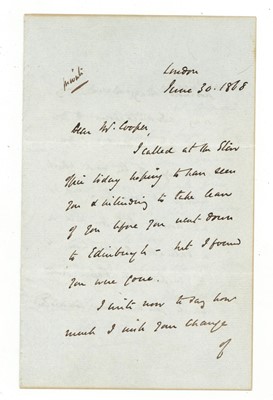 private
London
June 30. 1868
Dear Mr. Cooper,
I called at the Star
Office today hoping to have seen
you & intending to take leave
of you before you went down
to Edinburgh – but I found
you were gone.
I write now to say how
much I wish your change
of